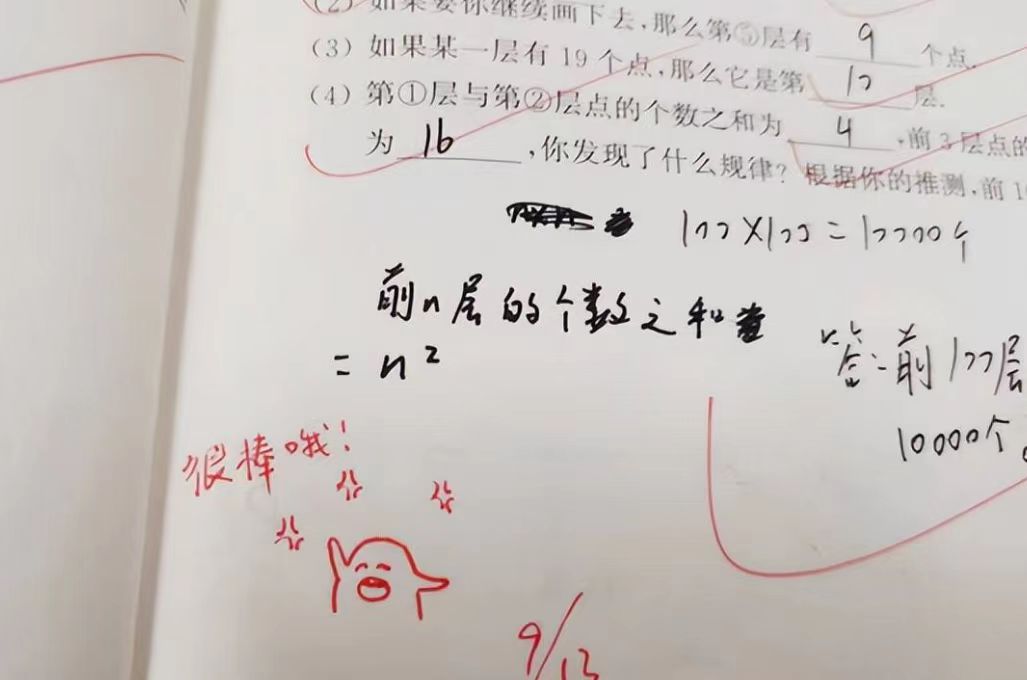 (2) 如果要你继续画下去,那么第⑤层有 9 个点.
(3) 如果某一层有 19 个点,那么它是第 10 层.
(4) 第①层与第②层点的个数之和为 4 ,前 3 层点的
为 16 ,你发现了什么规律? 根据你的推测,前 1
100×100=10000个
前n层的个数之和
= n²
答:前100层
10000个
很棒哦!
9/13